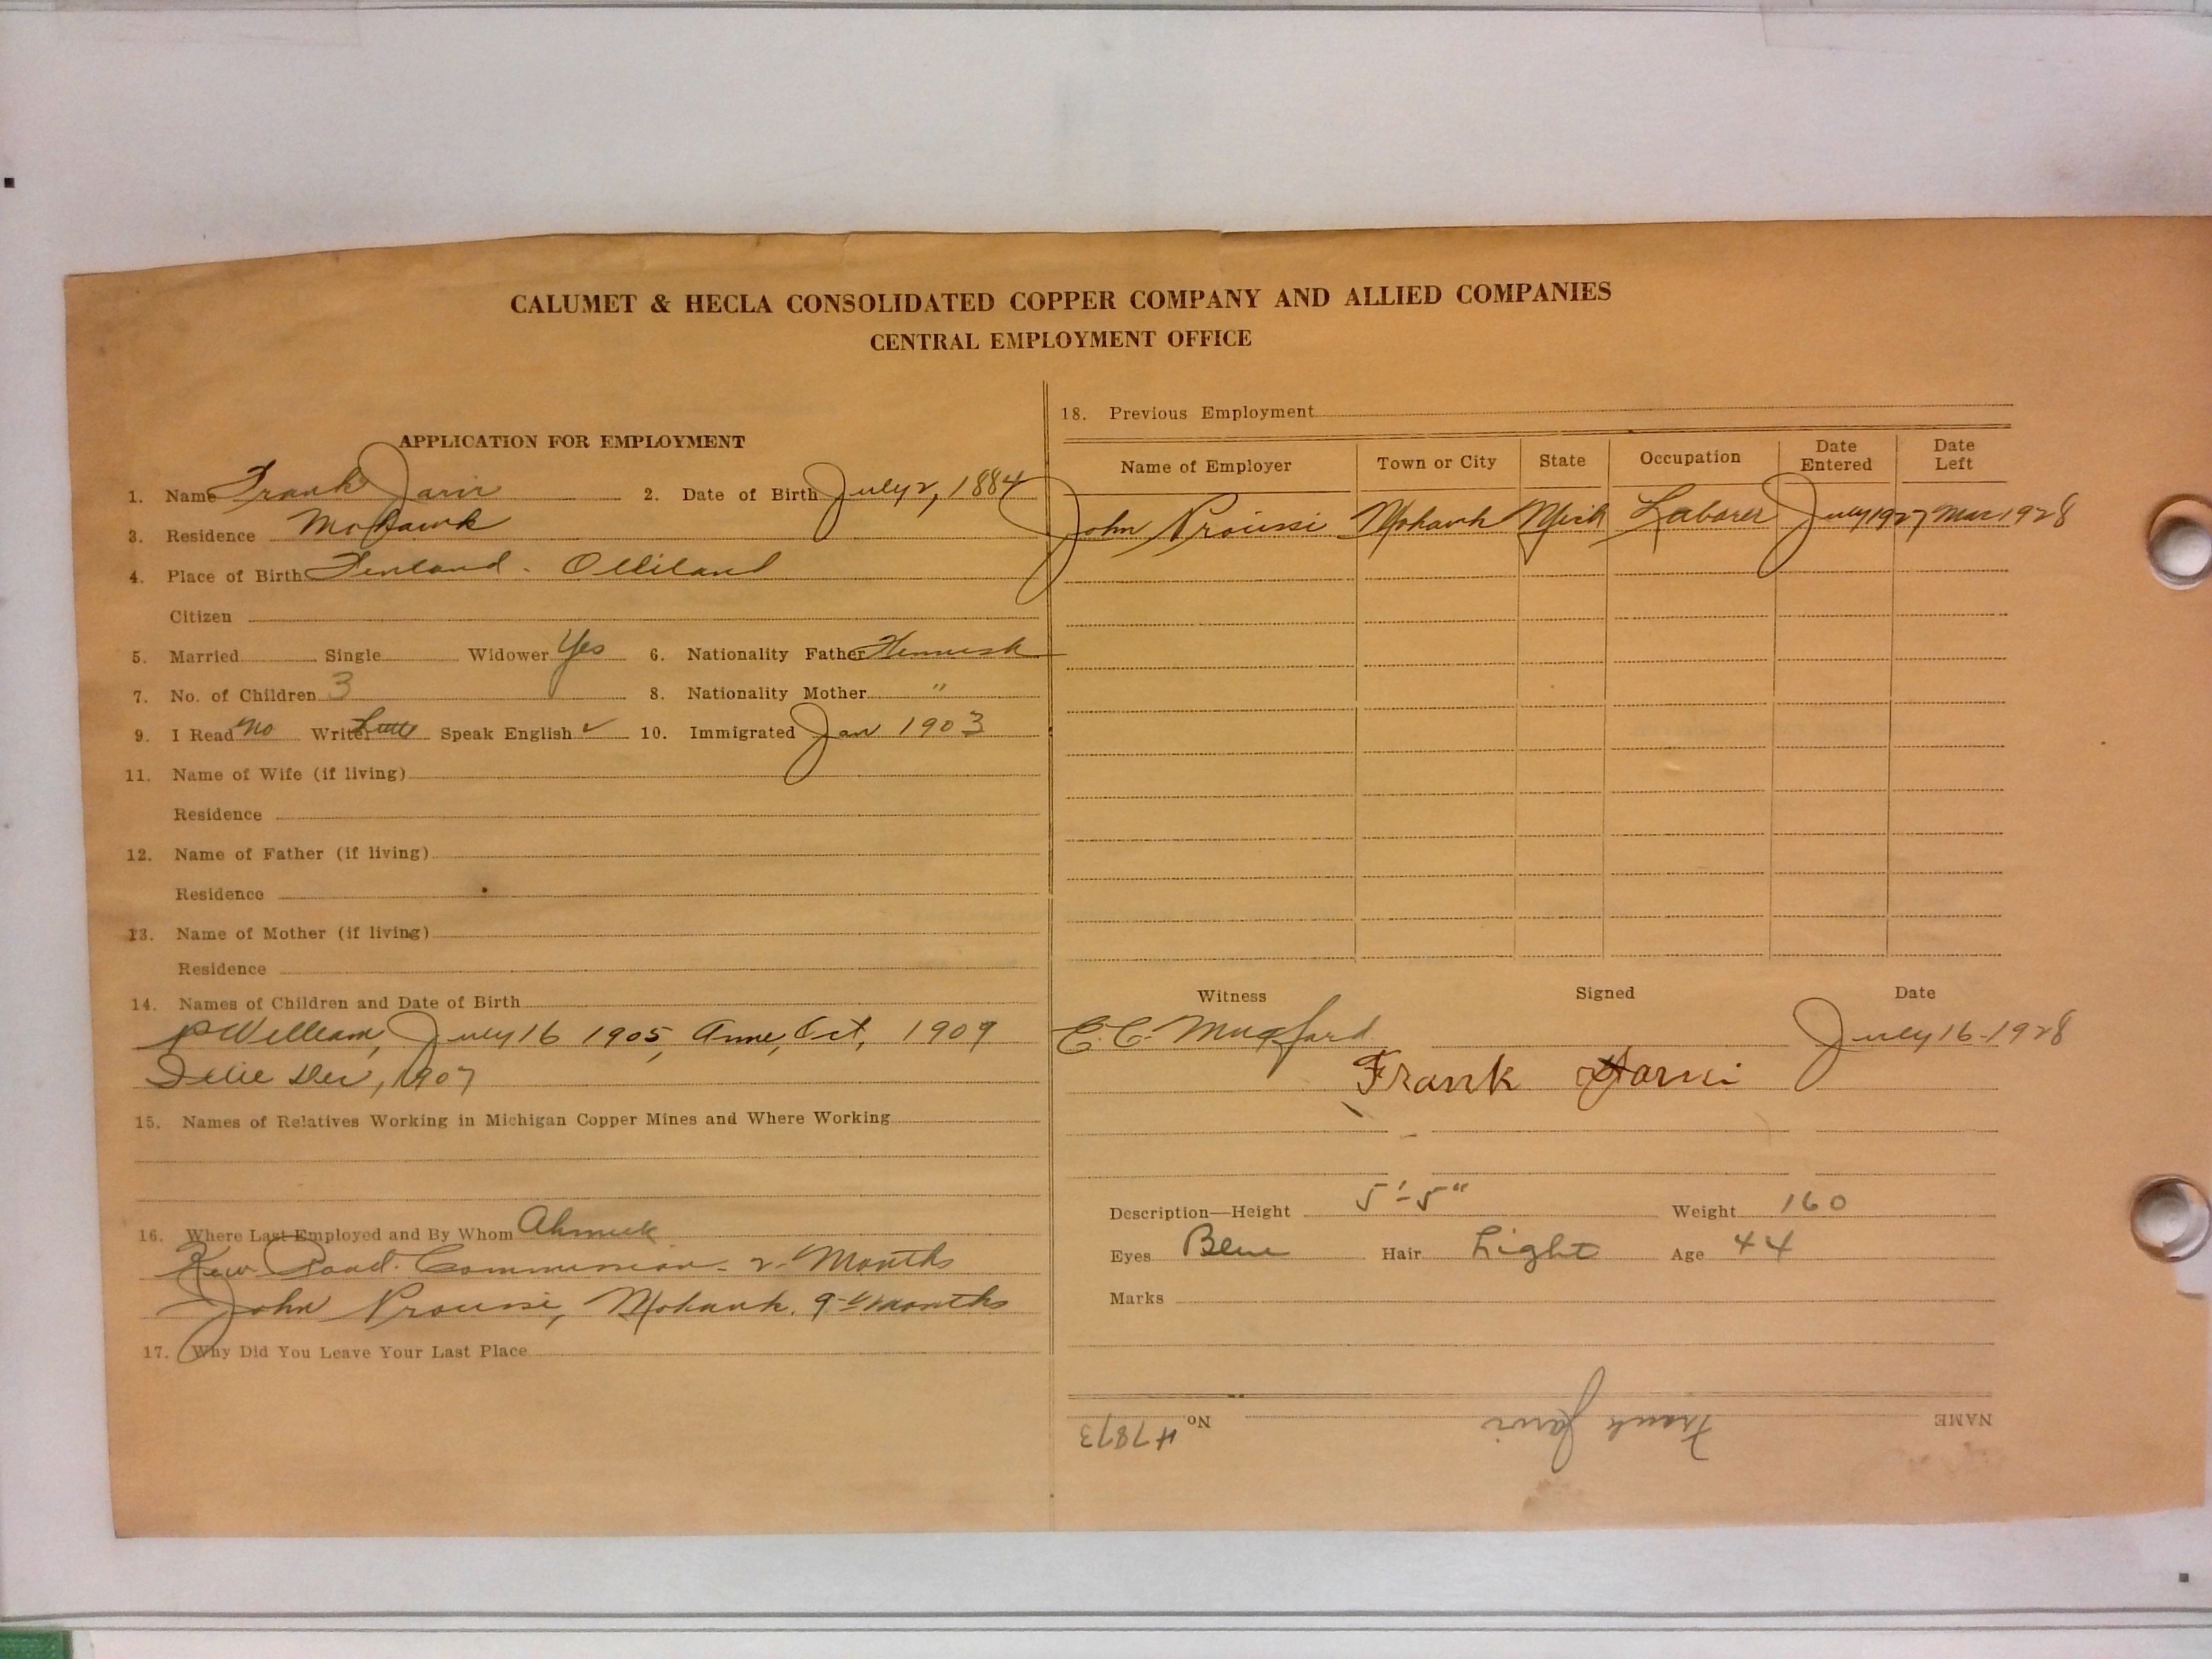 CALUMET & HECLA CONSOLIDATED COPPER COMPANY AND ALLIED COMPANIES
CENTRAL EMPLOYMENT OFFICE
APPLICATION FOR EMPLOYMENT
1. Name Frank Jarvi 2. Date of Birth July 2, 1884
3. Residence Mohawk
4. Place of Birth Finland -
Citizen
5. Married Single Widower Yes 6. Nationality Father Finnish
7. No. of Children 3 8. Nationality Mother "
9. I Read No Write Little Speak English ✓ 10. Immigrated Jan 1903
11. Name of Wife (if living)
Residence
12. Name of Father (if living)
Residence
13. Name of Mother (if living)
Residence
14. Names of Children and Date of Birth
William, July 16 1905, Anne, Oct, 1909
Dec, 1907
15. Names of Relatives Working in Michigan Copper Mines and Where Working
16. Where Last Employed and By Whom Ahmeek
Kew Road Commission - 2 - Months
John Mohawk, 9 - Months
17. Why Did You Leave Your Last Place
18. Previous Employment
Name of Employer Town or City State Occupation Date Entered Date Left
John Mohawk Mich Laborer July 1927 Mar 1928
Witness Signed Date
E.C. Mugford July 16-1928
Frank Jarvi
Description—Height 5'-5" Weight 160
Eyes Blue Hair Light Age 44
Marks
NAME Frank Jarvi No #7873